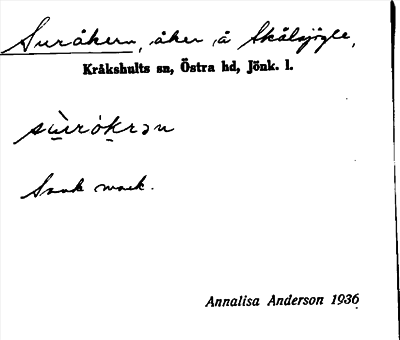 Suråkern, åker å Skälsjögle,
Kråkshults sn, Östra hd, Jönk. l.
sùrókrən
Sank mark.
Annalisa Anderson 1936